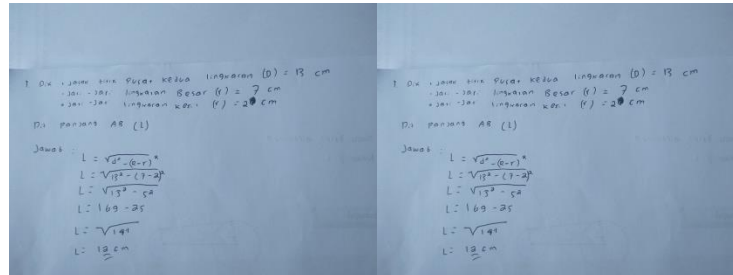 1. Dik : Jarak titik Pusat kedua lingkaran (D) = 13 cm
• Jari - Jari lingkaran Besar (r) = 7 cm
• Jari - Jari lingkaran kecil (r) = 2 cm
Dit Panjang AB (L)
Jawab :
L = √d² - (R-r)²
L = √13² - (7-2)²
L = √13² - 5²
L = 169 - 25
L = √144
L = 12 cm
1. Dik : Jarak titik Pusat kedua lingkaran (D) = 13 cm
• Jari - Jari lingkaran Besar (r) = 7 cm
• Jari - Jari lingkaran kecil (r) = 2 cm
Dit Panjang AB (L)
Jawab :
L = √d² - (R-r)²
L = √13² - (7-2)²
L = √13² - 5²
L = 169 - 25
L = √144
L = 12 cm